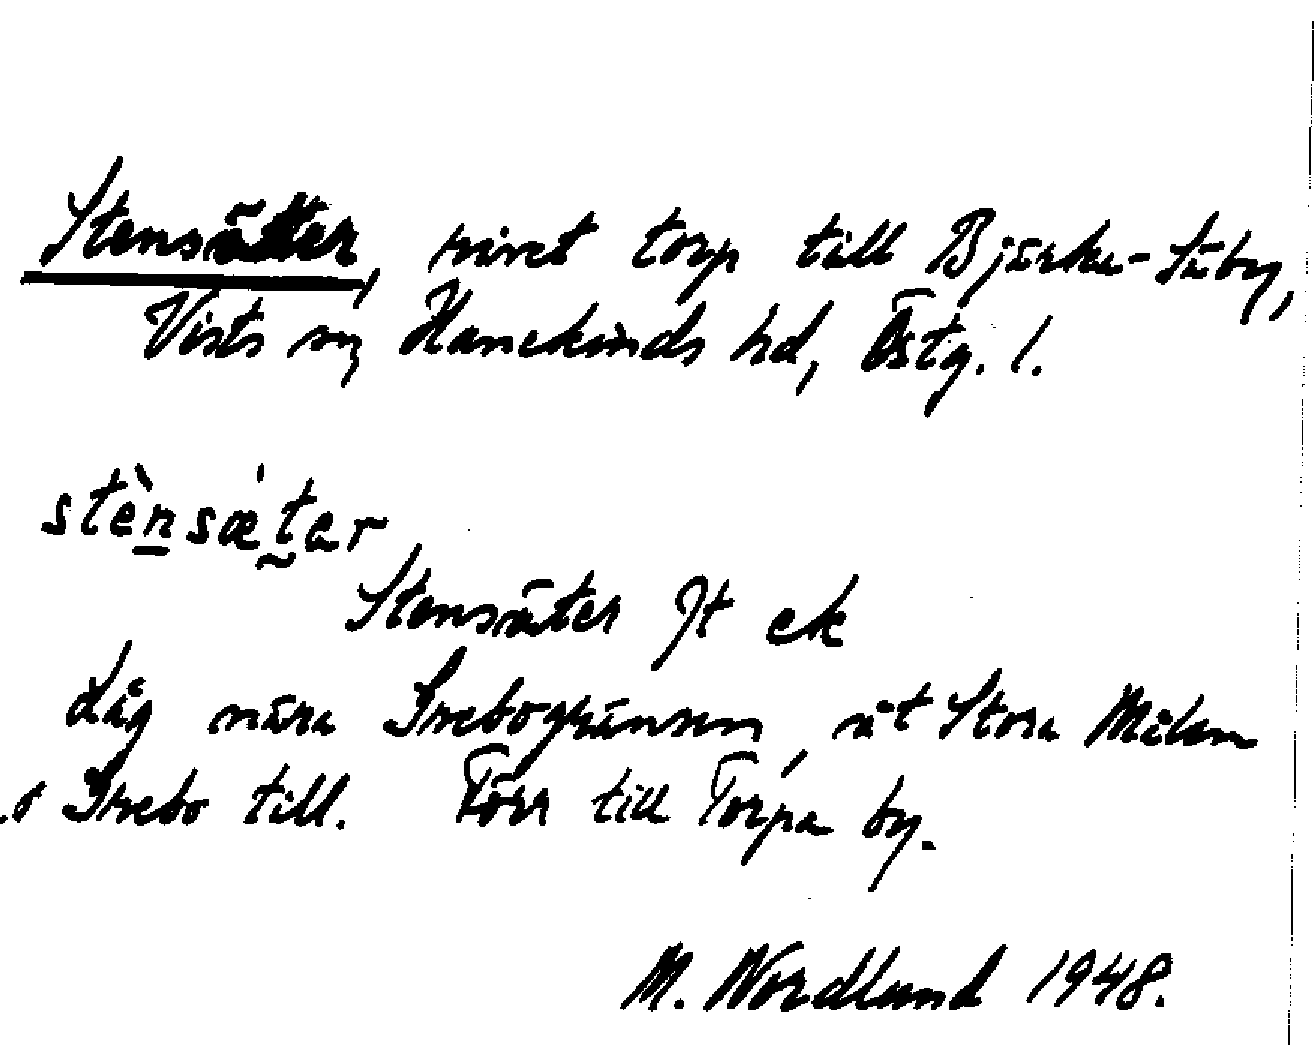 Stensätter, rivet torp till Bjärka-Säby,
Vists sn, Hanekinds hd, Östg. l.
stènsæ̀ter
Stensäter Jt ek
Låg nära Grebogränsen, åt Stora Målen
i Grebo till. Förr till Torpa by.
M. Nordlund 1948.